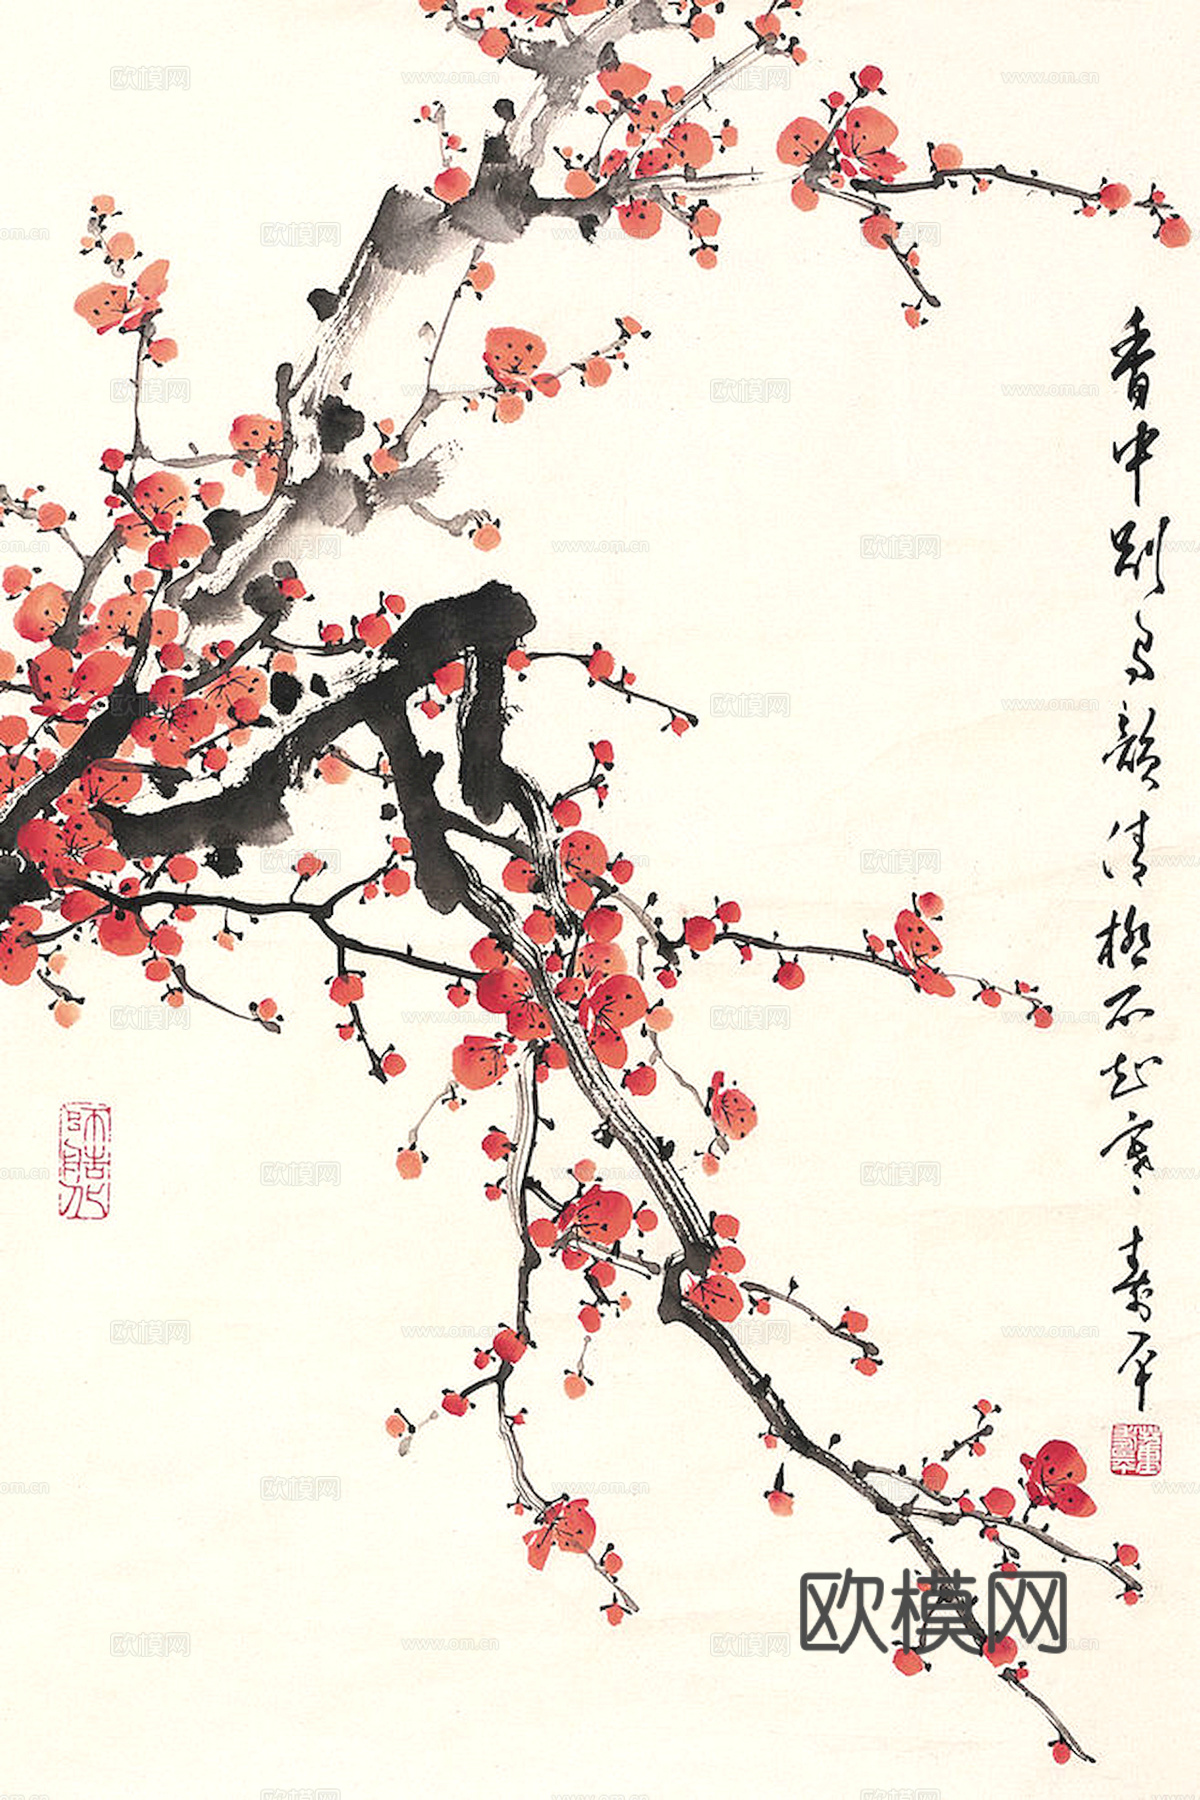 香中别有韵清极不知寒
寿平
欧模网
www.om.cn